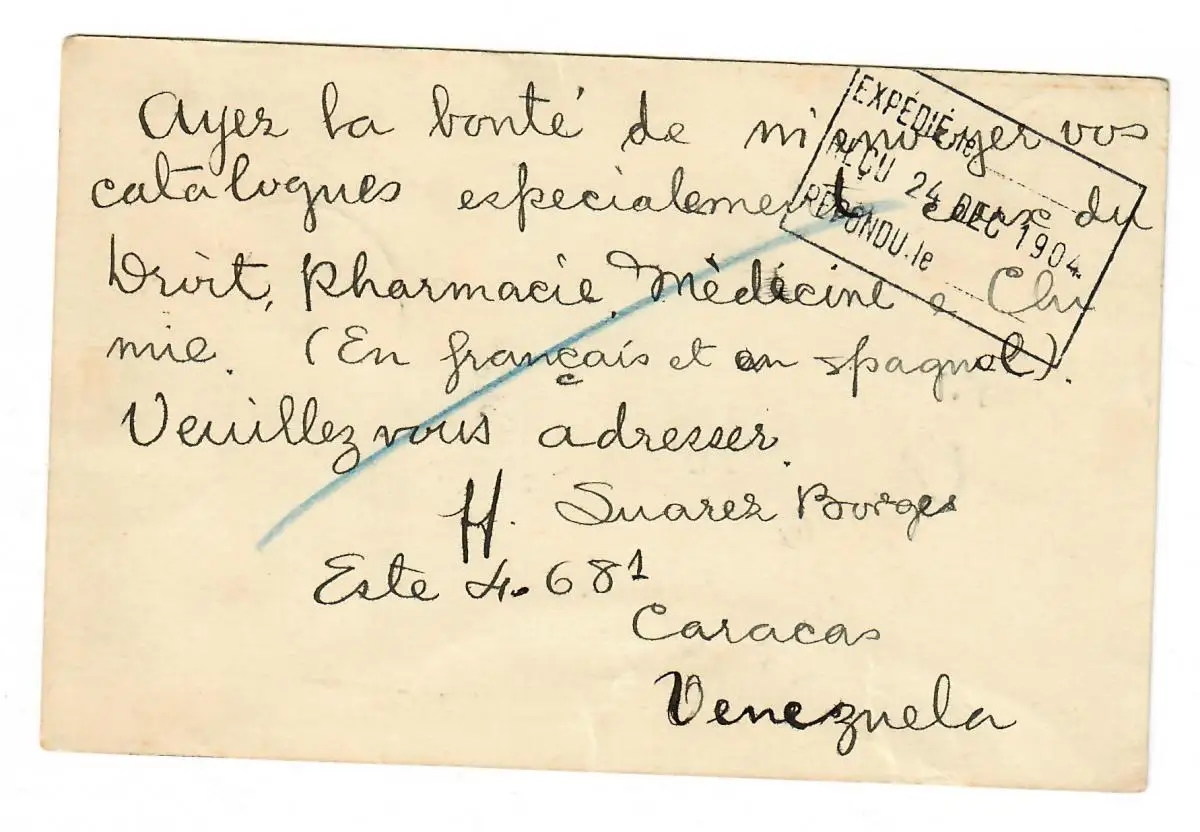 Ayez la bonté de m'envoyer vos
catalogues especialement ceux du
Droit, Pharmacie, Mèdécine e Chi
mie. (En français et en spagnol).
Veuillez vous adresser.
H. Suarez Borges
Este 4. 68¹
Caracas
Venezuela
EXPÉDIÉ.le
REÇU 24 DEC 1904
RÉPONDU.le